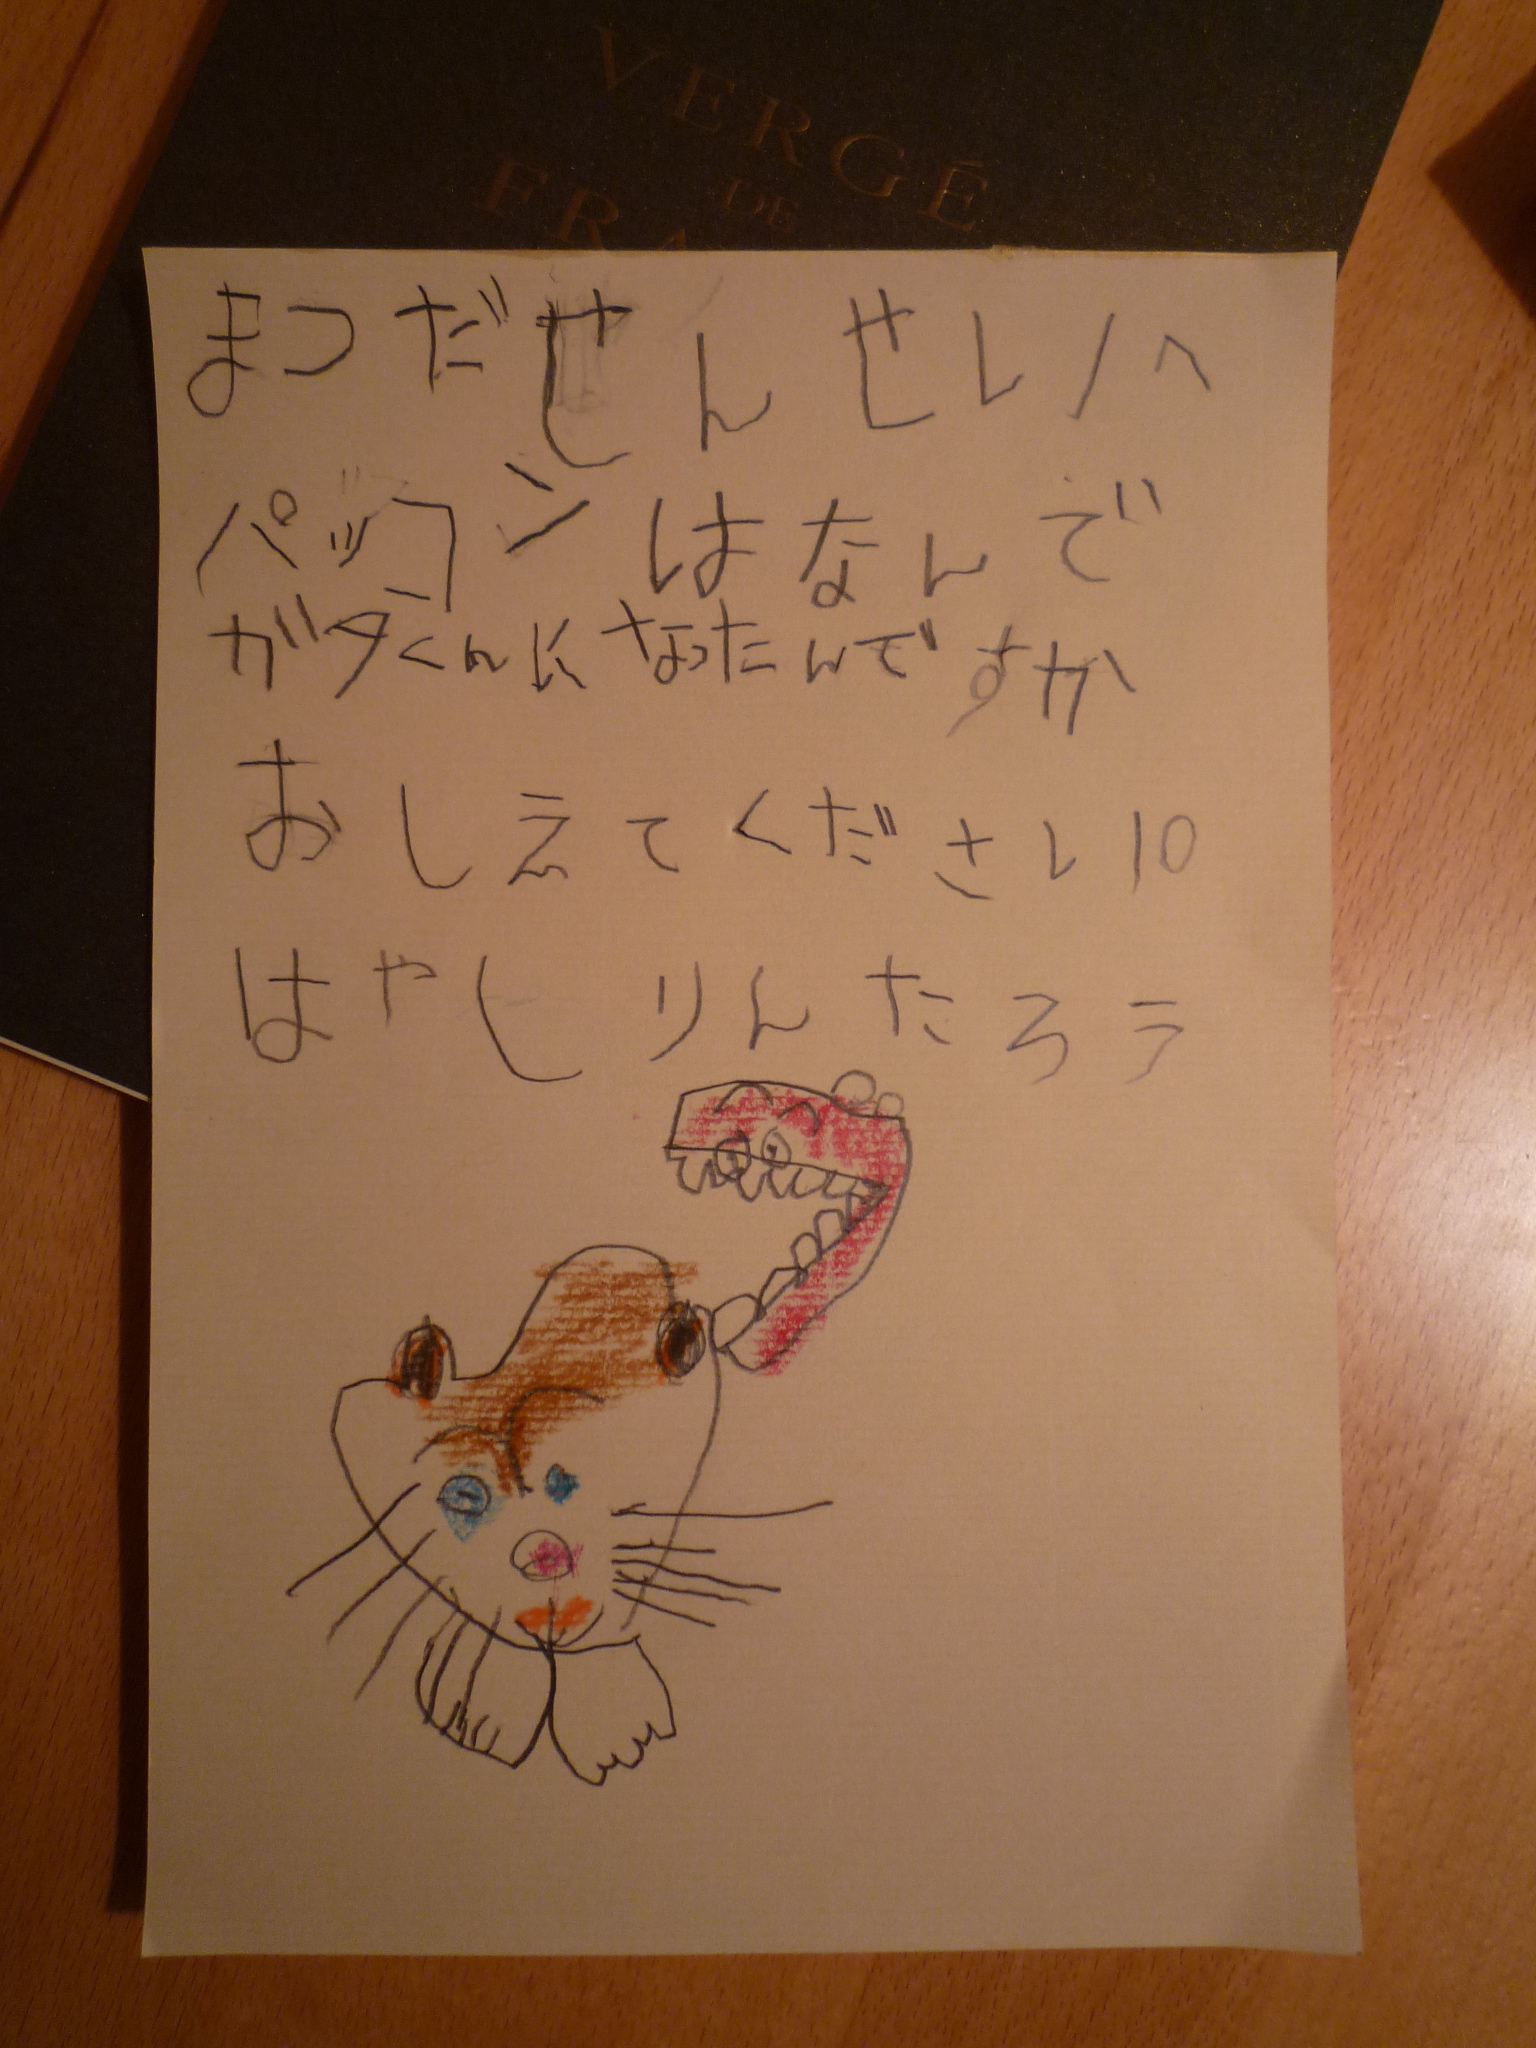 VERGÉ
DE
FRA
まつだせんせいへ
パッコンはなんで
ガタくんになったんですか
おしえてください。
はやしりんたろう